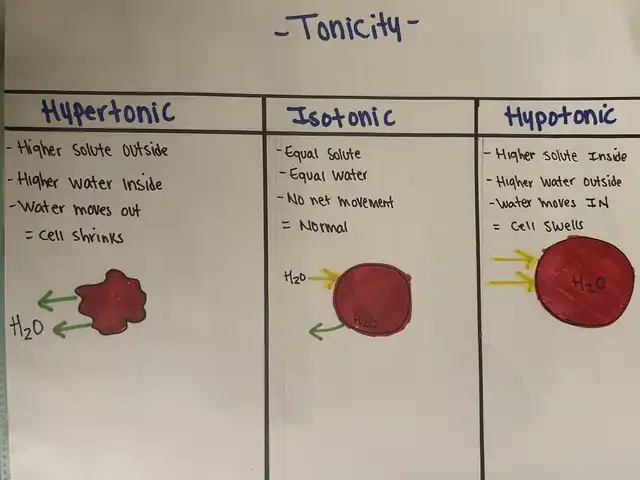 -Tonicity-
Hypertonic
-Higher solute outside
-Higher water inside
-Water moves out
= Cell shrinks
H2O
Isotonic
-Equal solute
-Equal water
-No net movement
= Normal
H2O
H2O
Hypotonic
-Higher solute Inside
-Higher water outside
-Water moves IN
= Cell swells
H2O